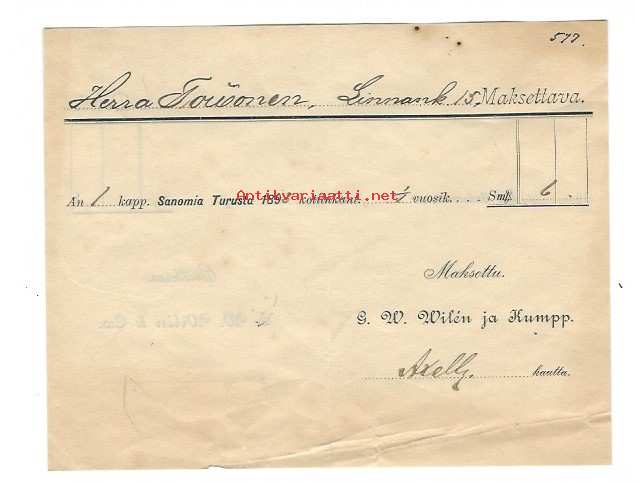 577.
Herra Toivonen, Linnank. 15. Maksettava.
An 1 kapp. Sanomia Turusta 189 kotiinkant. vuosik. Smk. 6.
Antikvariaatti.net
Maksettu.
G. W. Wilén ja Kumpp.
kautta.